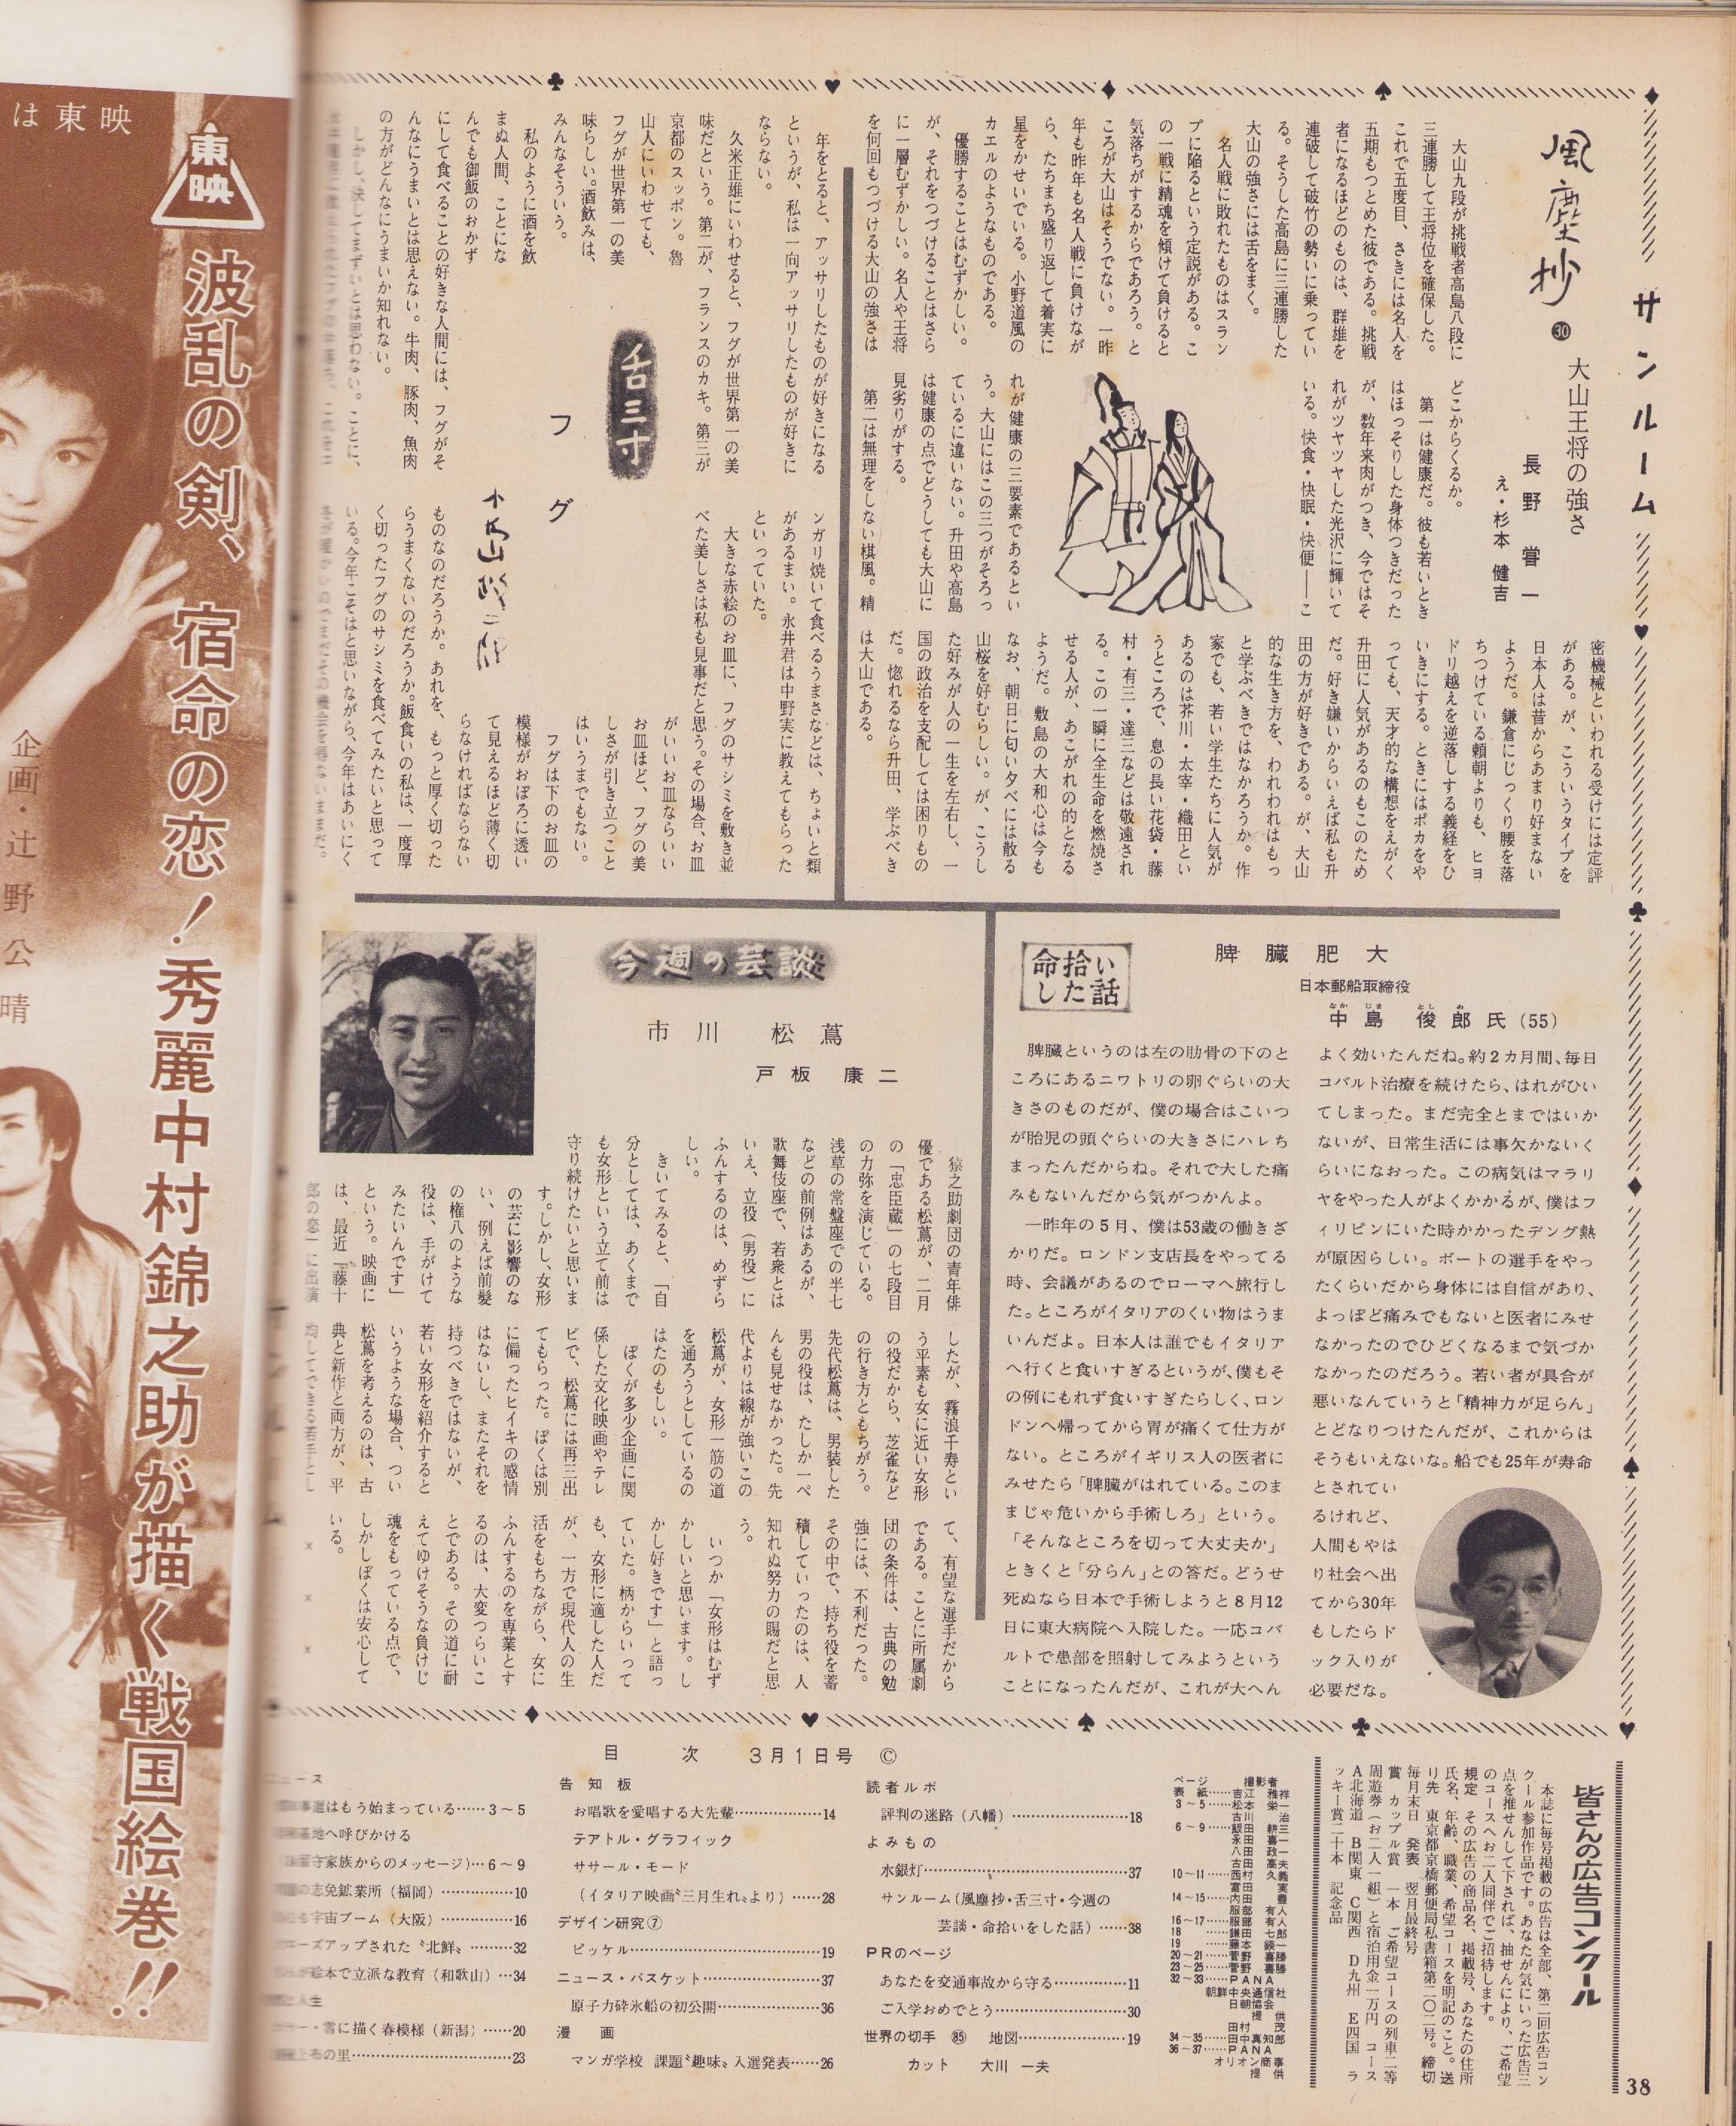 サンルーム
風塵抄
㉚
大山王将の強さ
長野 甞一
え・杉本 健吉
大山九段が挑戦者高島八段に
三連勝して王将位を確保した。
これで五度目、さきには名人を
五期もつとめた彼である。挑戦
者になるほどのものは、群雄を
連破して破竹の勢いに乗ってい
る。そうした高島に三連勝した
大山の強さには舌をまく。
名人戦に敗れたものはスラン
プに陥るという定説がある。こ
の一戦に精魂を傾けて負けると
気落ちがするからであろう。と
ころが大山はそうでない。一昨
年も昨年も名人戦に負けなが
ら、たちまち盛り返して着実に
星をかせいでいる。小野道風の
カエルのようなものである。
優勝することはむずかしい。
が、それをつづけることはさら
に一層むずかしい。名人や王将
を何回もつづける大山の強さは
どこからくるか。
第一は健康だ。彼も若いとき
はほっそりした身体つきだった
が、数年来肉がつき、今ではそ
れがツヤツヤした光沢に輝いて
いる。快食・快眠・快便――こ
れが健康の三要素であるとい
う。大山にはこの三つがそろっ
ているに違いない。升田や高島
は健康の点でどうしても大山に
見劣りがする。
第二は無理をしない棋風。精
密機械といわれる受けには定評
がある。が、こういうタイプを
日本人は昔からあまり好まない
ようだ。鎌倉にじっくり腰を落
ちつけている頼朝よりも、ヒヨ
ドリ越えを逆落しする義経をひ
いきにする。ときにはポカをや
っても、天才的な構想をえがく
升田に人気があるのもこのため
だ。好き嫌いからいえば私も升
田の方が好きである。が、大山
的な生き方を、われわれはもっ
と学ぶべきではなかろうか。作
家でも、若い学生たちに人気が
あるのは芥川・太宰・織田とい
うところで、息の長い花袋・藤
村・有三・達三などは敬遠され
る。この一瞬に全生命を燃焼さ
せる人が、あこがれの的となる
ようだ。敷島の大和心は今も
なお、朝日に匂い夕べには散る
山桜を好むらしい。が、こうし
た好みが人の一生を左右し、一
国の政治を支配しては困りもの
だ。惚れるなら升田、学ぶべき
は大山である。
舌三寸
フグ
年をとると、アッサリしたものが好きになる
というが、私は一向アッサリしたものが好きに
ならない。
久米正雄にいわせると、フグが世界第一の美
味だという。第二が、フランスのカキ。第三が
京都のスッポン。魯
山人にいわせても、
フグが世界第一の美
味らしい。酒飲みは、
みんなそういう。
私のように酒を飲
まぬ人間、ことにな
んでも御飯のおかず
にして食べることの好きな人間には、フグがそ
んなにうまいとは思えない。牛肉、豚肉、魚肉
の方がどんなにうまいか知れない。
しかし、決してまずいとは思わない。ことに、
ンガリ焼いて食べるうまさなどは、ちょいと類
があるまい。永井君は中野実に教えてもらった
といっていた。
大きな赤絵のお皿に、フグのサシミを敷き並
べた美しさは私も見事だと思う。その場合、お皿
がいいお皿ならいい
お皿ほど、フグの美
しさが引き立つこと
はいうまでもない。
フグは下のお皿の
模様がおぼろに透い
て見えるほど薄く切
らなければならない
ものなのだろうか。あれを、もっと厚く切った
らうまくないのだろうか。飯食いの私は、一度厚
く切ったフグのサシミを食べてみたいと思って
いる。今年こそはと思いながら、今年はあいにく
命拾いした話
脾臓肥大
日本郵船取締役
中島 俊郎氏(55)
なか じま とし お
脾臓というのは左の肋骨の下のと
ころにあるニワトリの卵ぐらいの大
きさのものだが、僕の場合はこいつ
が胎児の頭ぐらいの大きさにハレち
まったんだからね。それで大した痛
みもないんだから気がつかんよ。
一昨年の5月、僕は53歳の働きざ
かりだ。ロンドン支店長をやってる
時、会議があるのでローマへ旅行し
た。ところがイタリアのくい物はうま
いんだよ。日本人は誰でもイタリア
へ行くと食いすぎるというが、僕もそ
の例にもれず食いすぎたらしく、ロン
ドンへ帰ってから胃が痛くて仕方が
ない。ところがイギリス人の医者に
みせたら「脾臓がはれている。このま
まじゃ危いから手術しろ」という。
「そんなところを切って大丈夫か」
ときくと「分らん」との答だ。どうせ
死ぬなら日本で手術しようと8月12
日に東大病院へ入院した。一応コバ
ルトで患部を照射してみようという
ことになったんだが、これが大へん
よく効いたんだね。約2カ月間、毎日
コバルト治療を続けたら、はれがひい
てしまった。まだ完全とまではいか
ないが、日常生活には事欠かないく
らいになおった。この病気はマラリ
ヤをやった人がよくかかるが、僕はフ
ィリピンにいた時かかったデング熱
が原因らしい。ボートの選手をやっ
たくらいだから身体には自信があり、
よっぽど痛みでもないと医者にみせ
なかったのでひどくなるまで気づか
なかったのだろう。若い者が具合が
悪いなんていうと「精神力が足らん」
とどなりつけたんだが、これからは
そうもいえないな。船でも25年が寿命
とされてい
るけれど、
人間もやは
り社会へ出
てから30年
もしたらド
ック入りが
必要だな。
今週の芸談
市川 松蔦
戸板 康二
猿之助劇団の青年俳
優である松蔦が、二月
の「忠臣蔵」の七段目
の力弥を演じている。
浅草の常盤座での半七
などの前例はあるが、
歌舞伎座で、若衆とは
いえ、立役（男役）に
ふんするのは、めずら
しい。
きいてみると、「自
分としては、あくまで
も女形という立て前は
守り続けたいと思いま
す。しかし、女形
の芸に影響のな
い、例えば前髪
の権八のような
役は、手がけて
みたいんです」
という。映画に
は、最近『藤十
郎の恋』に出演
したが、霧浪千寿とい
う平素も女に近い女形
の役だから、芝雀など
の行き方ともちがう。
先代松蔦は、男装した
男の役は、たしか一ぺ
んも見せなかった。先
代よりは線が強いこの
松蔦が、女形一筋の道
を通ろうとしているの
はたのもしい。
ぼくが多少企画に関
係した文化映画やテレ
ビで、松蔦には再三出
てもらった。ぼくは別
に偏ったヒイキの感情
はないし、またそれを
持つべきではないが、
若い女形を紹介すると
いうような場合、つい
松蔦を考えるのは、古
典と新作と両方が、平
均してできる若手とし
て、有望な選手だから
である。ことに所属劇
団の条件は、古典の勉
強には、不利だった。
その中で、持ち役を蓄
積していったのは、人
知れぬ努力の賜だと思
う。
いつか「女形はむず
かしいと思います。し
かし好きです」と語っ
ていた。柄からいって
も、女形に適した人だ
が、一方で現代人の生
活をもちながら、女に
ふんするのを専業とす
るのは、大変つらいこ
とである。その道に耐
えてゆけそうな負けじ
魂をもっている点で、
しかしぼくは安心して
いる。
× × ×
目次 3月1日号 ©
選はもう始まっている……3～5
基地へ呼びかける
守家族からのメッセージ)…6～9
の志免鉱業所（福岡）……10
宇宙ブーム（大阪）……16
ーズアップされた〝北鮮〟……32
絵本で立派な教育（和歌山）…34
と人生
ー・雪に描く春模様（新潟）……20
上布の里……23
告知板
お唱歌を愛唱する大先輩……14
テアトル・グラフィック
ササール・モード
（イタリア映画〝三月生れ〟より）……28
デザイン研究⑦
ピッケル……19
ニュース・バスケット……37
原子力砕氷船の初公開……36
漫画
マンガ学校 課題〝趣味〟入選発表……26
読者ルポ
評判の迷路（八幡）……18
よみもの
水銀灯……37
サンルーム（風塵抄・舌三寸・今週の
芸談・命拾いをした話）……38
PRのページ
あなたを交通事故から守る……11
ご入学おめでとう……30
世界の切手 ㊄ 地図……19
カット 大川 一夫
ページ 撮影者
表紙……吉江雅祥
3～5……松本栄一
古川 治
6～9……飯田 耕三
永田 喜一
八田 政一
古田 高夫
10～11……西村 久義
富田 実
14～15……内田 豊
服部 有人
16～17……服部 有人
18……鎌田 七郎
19……藤本 鍈一
20～21……菅野 喜勝
23～25……菅野 喜勝
32～33……PANA
朝鮮中央通信社
日朝協会
提供
田村 茂
34～35……田中真知郎
36～37……PANA
オリオン商事
提供
皆さんの広告コンクール
本誌に毎号掲載の広告は全部、第二回広告コン
クール参加作品です。あなたが気にいった広告三
点を推せんして下されば、抽せんにより、ご希望
のコースへお二人同伴でご招待します。
規定 その広告の商品名、掲載号、あなたの住所
氏名、年齢、職業、希望コースを明記のこと。送
り先 東京都京橋郵便局私書箱第二〇二号。締切
毎月末日 発表 翌月最終号
賞 カップル賞 一本 ご希望コースの列車二等
周遊券（お二人一組）と宿泊用金一万円 コース
A北海道 B関東 C関西 D九州 E四国 ラ
ッキー賞二十本 記念品
38
は東映
東映
波乱の剣、宿命の恋！秀麗中村錦之助が描く戦国絵巻!!
企画・辻野公晴